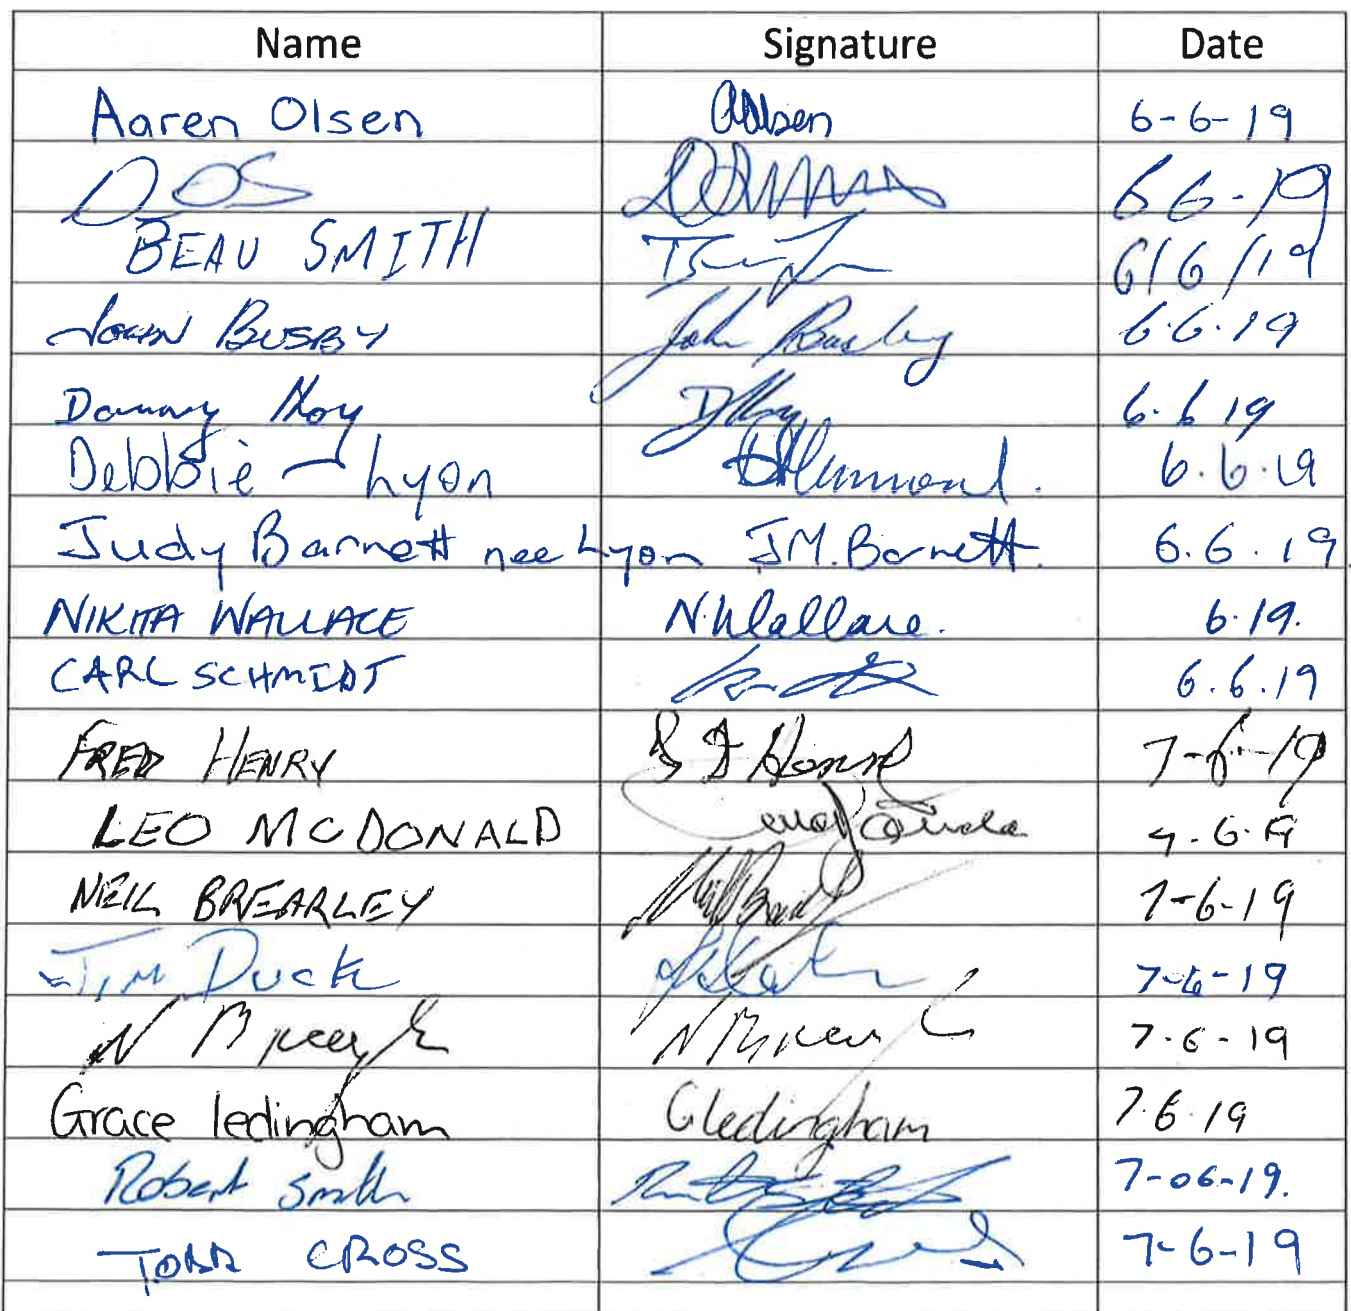 Name Signature Date
Aaren Olsen AOlsen 6-6-19
DOS 6 6-19
BEAU SMITH 6/6/19
JOHN BUSBY John Busby 6.6.19
Danny Hoy DHoy 6.6 19
Debbie - Lyon 6.6.19
Judy Barnett nee Lyon J.M. Barnett. 6.6.19.
NIKITA WALLACE N.Wallace. 6.19.
CARL SCHMIDT 6.6.19
FRED HENRY 7-6-19
LEO MCDONALD 7.6.19
NEIL BREARLEY 7-6-19
Tim Duck 7-6-19
N 7.6-19
Grace ledingham Gledingham 7.6.19
Robert Smith 7-06-19.
TODD CROSS 7-6-19